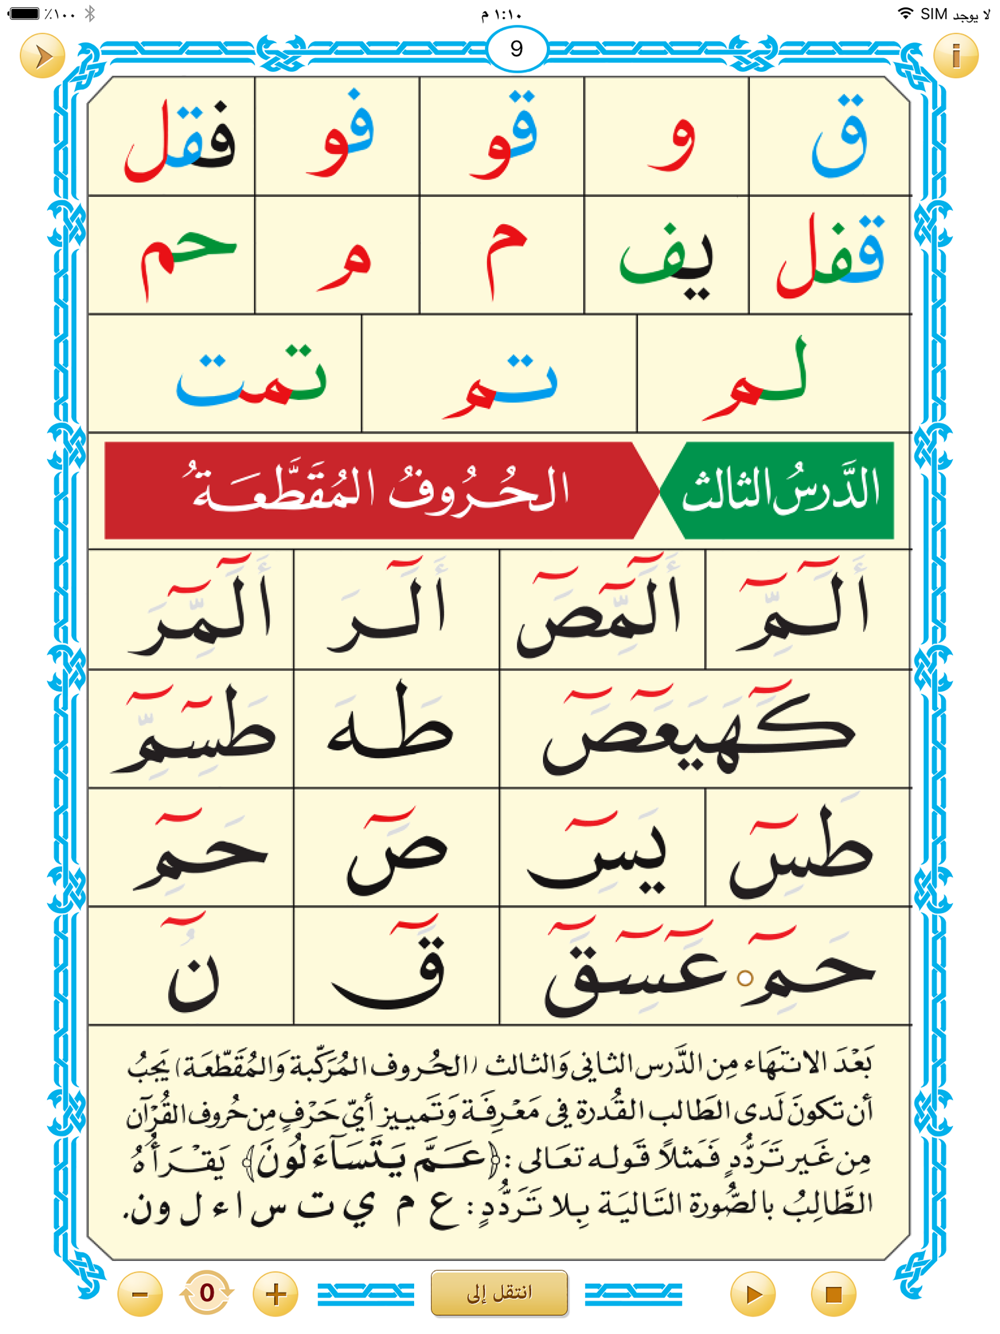 لا يوجد SIM ١:١٠ م ٪١٠٠
9
ق و قو فو فقل
قفل يف م م حم
لم تم تمت
الدَّرسُ الثالث الحُرُوفُ المُقَطَّعَةُ
الٓمٓ الٓمٓصٓ الٓر الٓمٓر
كٓهيعٓصٓ طه طسٓمٓ
طسٓ يسٓ صٓ حمٓ
حمٓ عٓسٓقٓ قٓ نٓ
بَعْدَ الانتهَاء مِن الدَّرس الثاني وَالثالث (الحُروف المُرَكّبة وَالمُقَطّعَة) يَجبُ
أن تكونَ لَدى الطَالب القُدرة في مَعْرِفَة وَتَمييز أيّ حَرْفٍ مِن حُروف القُرْآن
مِن غَير تَرَدُّدٍ فَمَثلاً قَوله تعَالى : ﴿عَمَّ يَتَسَآءَلُونَ﴾ يَقْرَأُهُ
الطَّالِبُ بالصُّورة التَاليَة بِلا تَرَدُّدٍ : ع م ي ت س ا ء ل و ن.
انتقل إلى
0